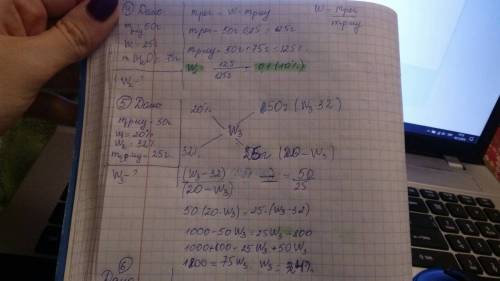 ④ Дано:
m р-ну = 50г
W = 25%
m (H₂O) = 75г
W₂ - ?
m реч = W · m р-ну
W = m реч / m р-ну
m реч = 50г · 0,25 = 12,5г
m р-ну = 50г + 75г = 125г
W₂ = 12,5 / 125г = 0,1 (10%)
⑤ Дано:
m₁ р-ну = 50г
W₁ = 20%
W₂ = 32%
m₂ р-ну = 25г
W₃ - ?
20% 50г (W₃ 32)
W₃
32% 25г (20 - W₃)
(W₃-32) / (20-W₃) = 50 / 25
50 (20-W₃) = 25·(W₃-32)
1000-50W₃ = 25W₃-800
1000+800 = 25W₃+50W₃
1800 = 75W₃ W₃ = 24%
⑥
Дано: